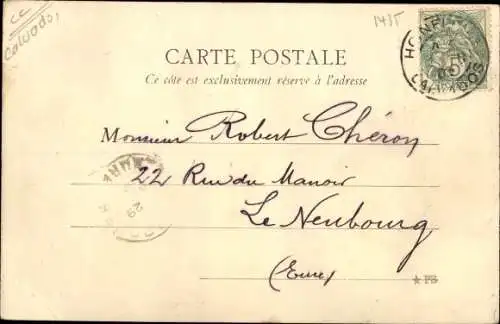 CC
Calvados
1435
HONFL
CALVADOS
5
CARTE POSTALE
Ce côté est exclusivement réservé à l'adresse
Monsieur Robert Chéron
22 Rue du Manoir
Le Neubourg
(Eure)
29
★ PS